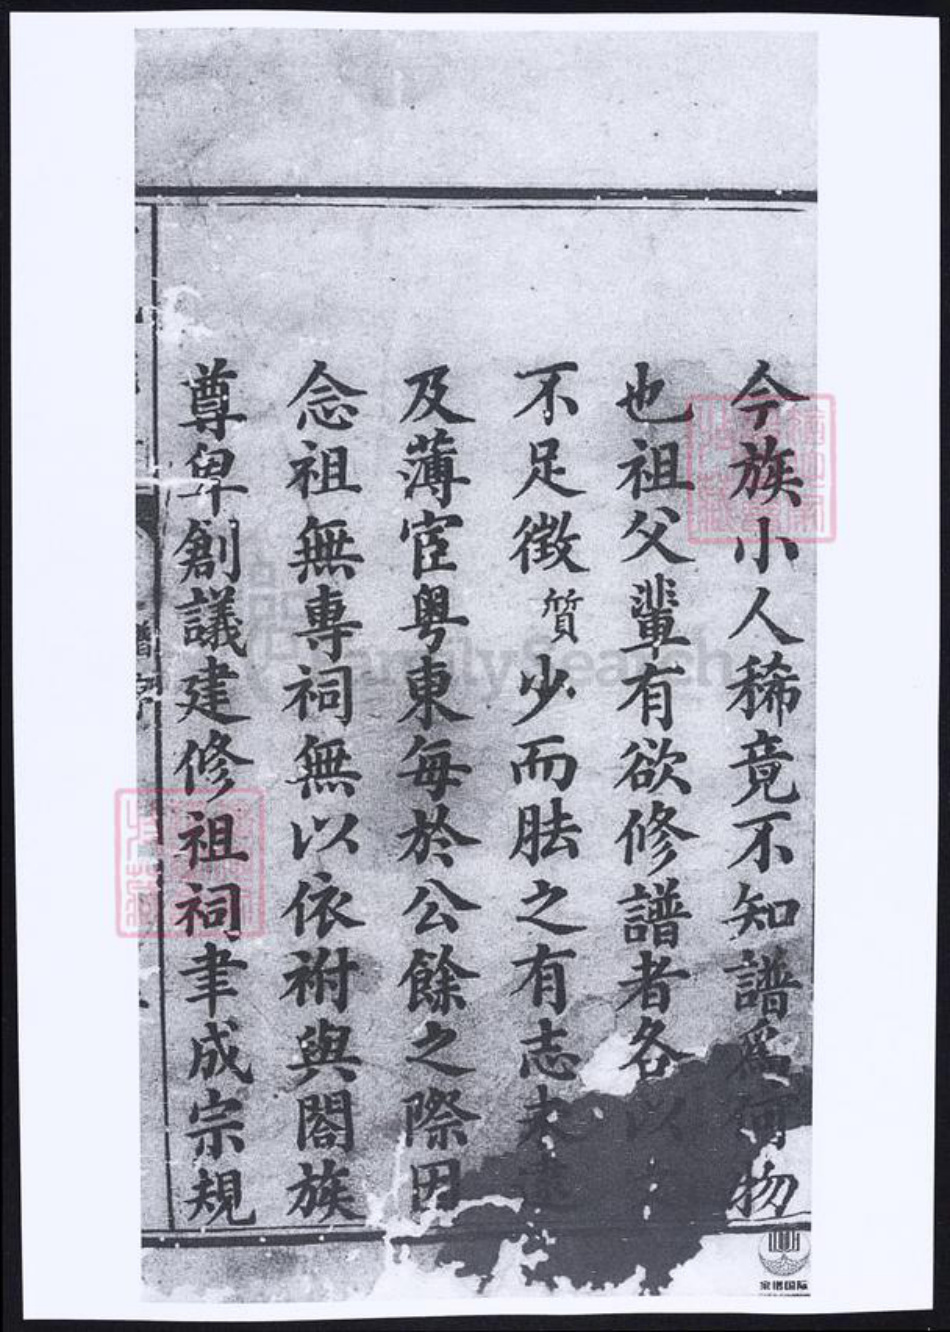 今族小人稀竟不知譜爲何物
也祖父輩有欲修譜者各以
不足徵質少而胠之有志未逮
及薄宦粵東每於公餘之際因
念祖無專祠無以依祔與閤族
尊卑創議建修祖祠聿成宗規
譜序
FamilySearch
家谱国际